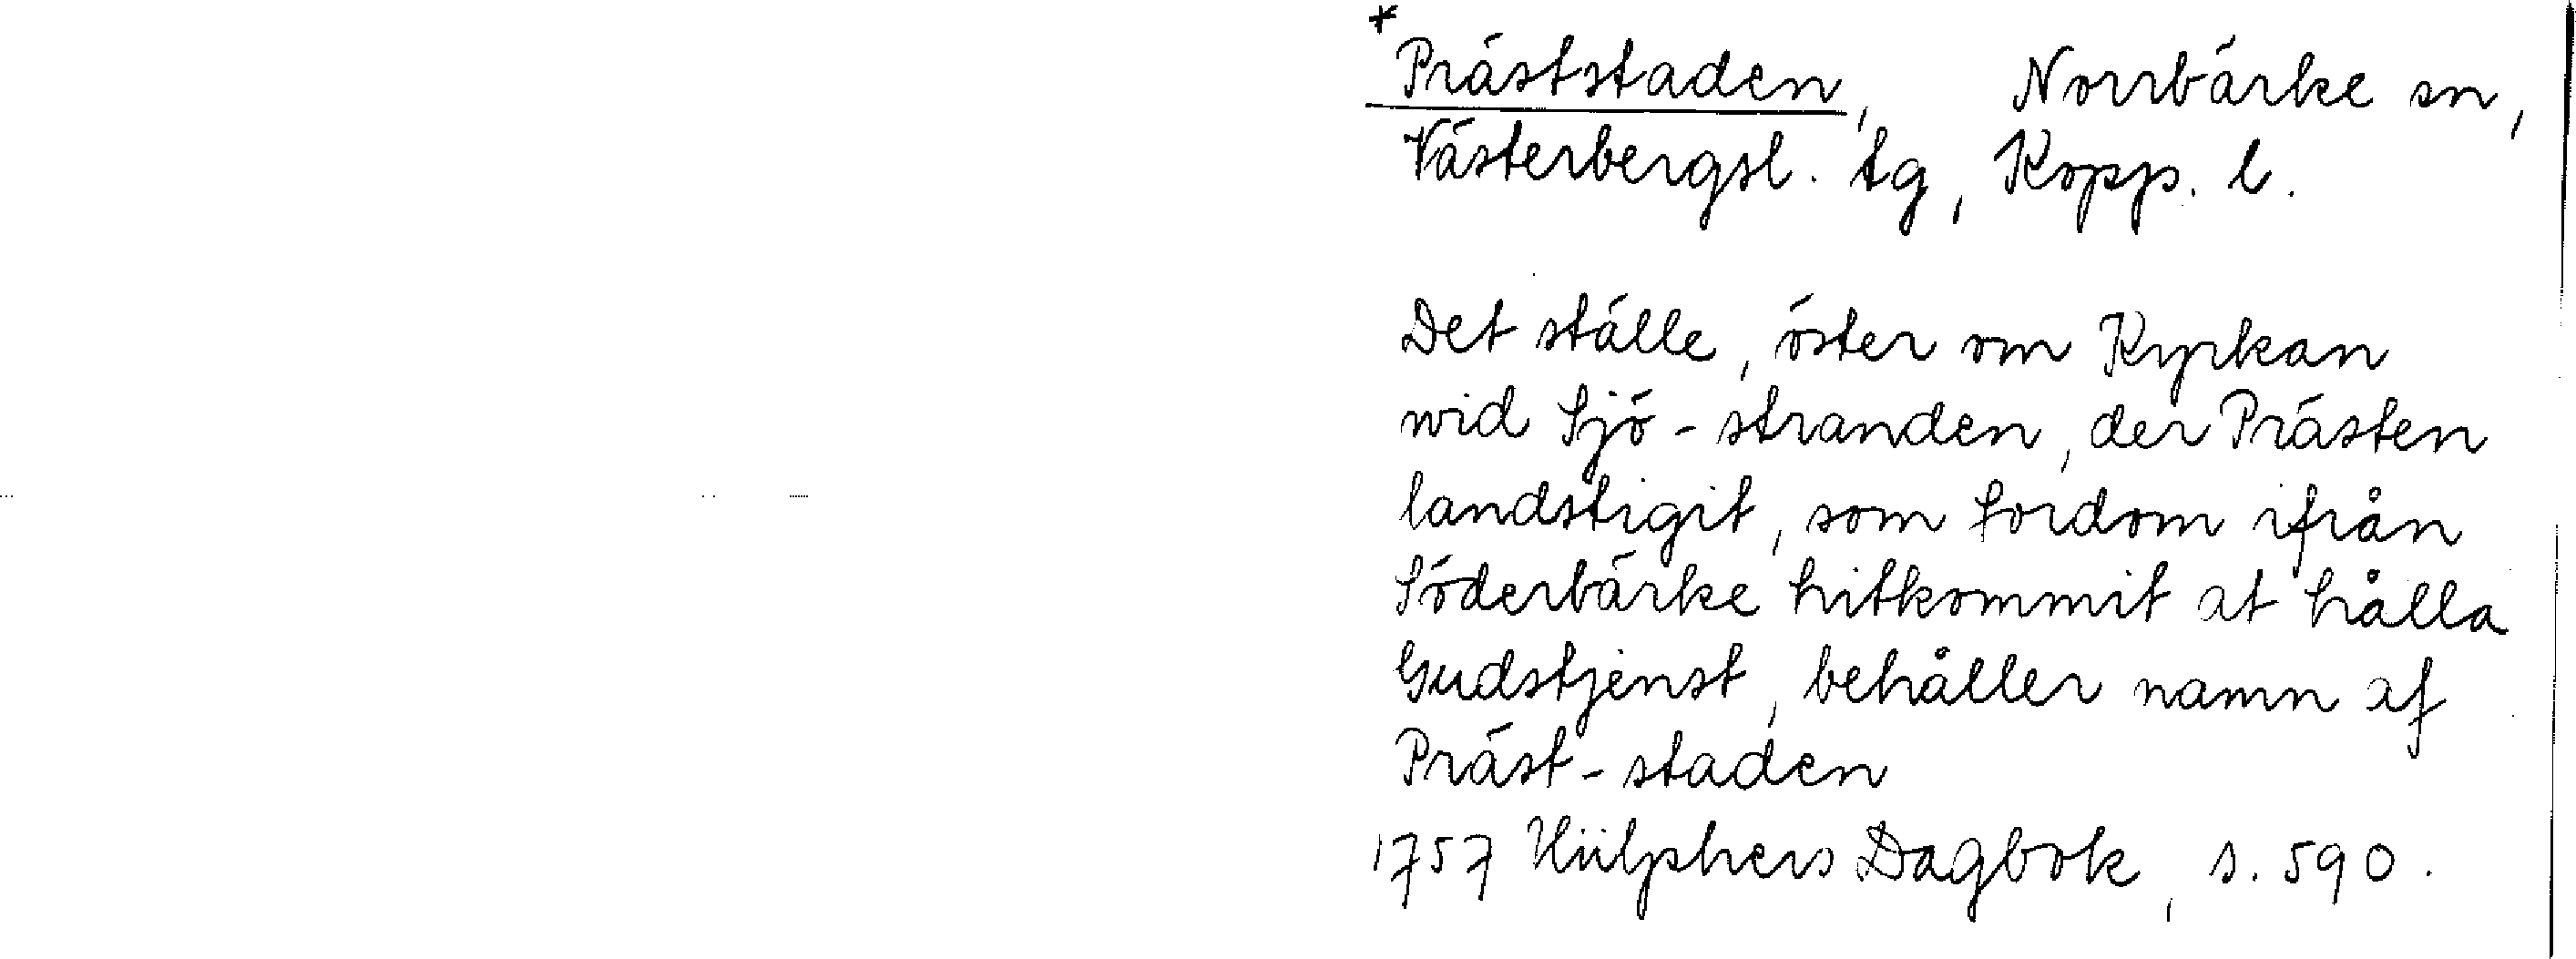 * Präststaden, Norrbärke sn,
Västerbergsl. tg, Kopp. l.
Det ställe, öster om Kyrkan
wid Sjö-stranden, der Prästen
landstigit, som fordom ifrån
Söderbärke hitkommit at hålla
Gudstjenst, behåller namn af
Präst-staden
1757 Hülphers Dagbok, s. 590.